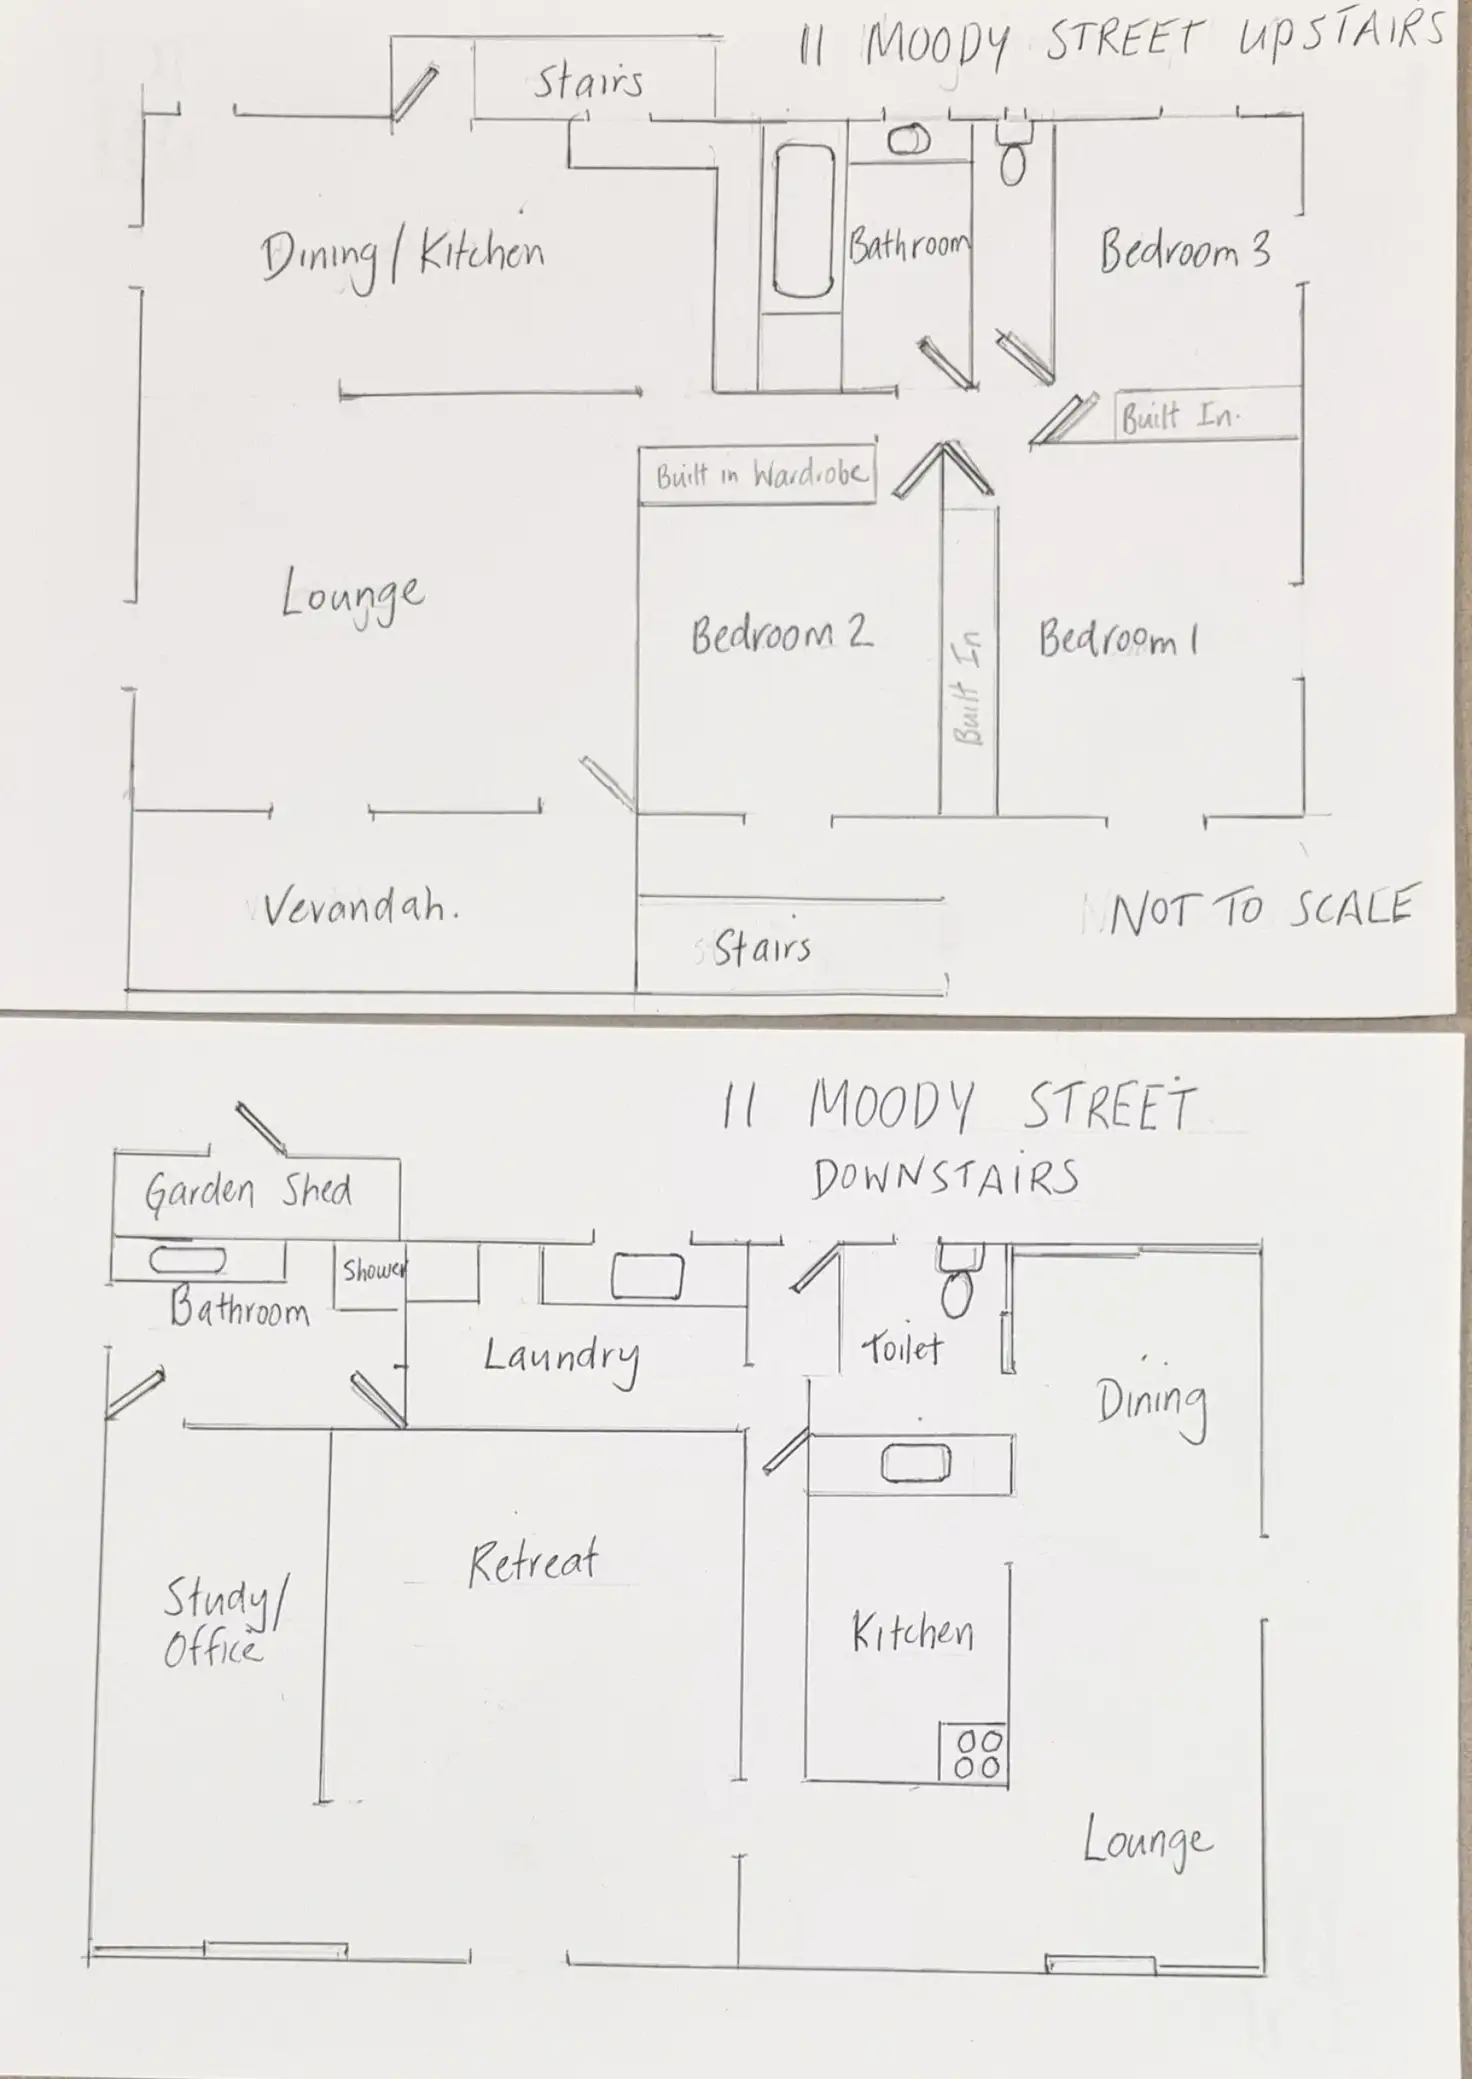 11 MOODY STREET UPSTAIRS
Stairs
Dining/Kitchen
Bathroom
Bedroom 3
Built In.
Built in Wardrobe
Lounge
Bedroom 2
Built In
Bedroom 1
Verandah.
Stairs
NOT TO SCALE
11 MOODY STREET
DOWNSTAIRS
Garden Shed
Shower
Bathroom
Laundry
Toilet
Dining
Retreat
Study/
Office
Kitchen
Lounge